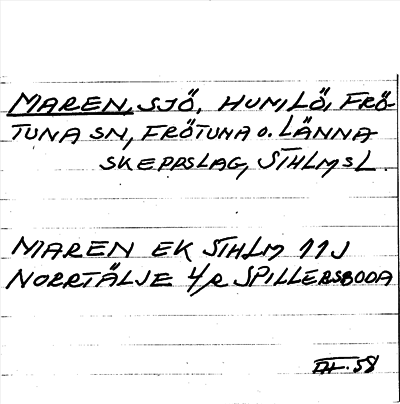 MAREN, SJÖ, HUMLÖ, FRÖ-
TUNA SN, FRÖTUNA O. LÄNNA
SKEPPSLAG, STHLMS L.
MAREN EK STHLM 11J
NORRTÄLJE 4/R SPILLERSBODA
58